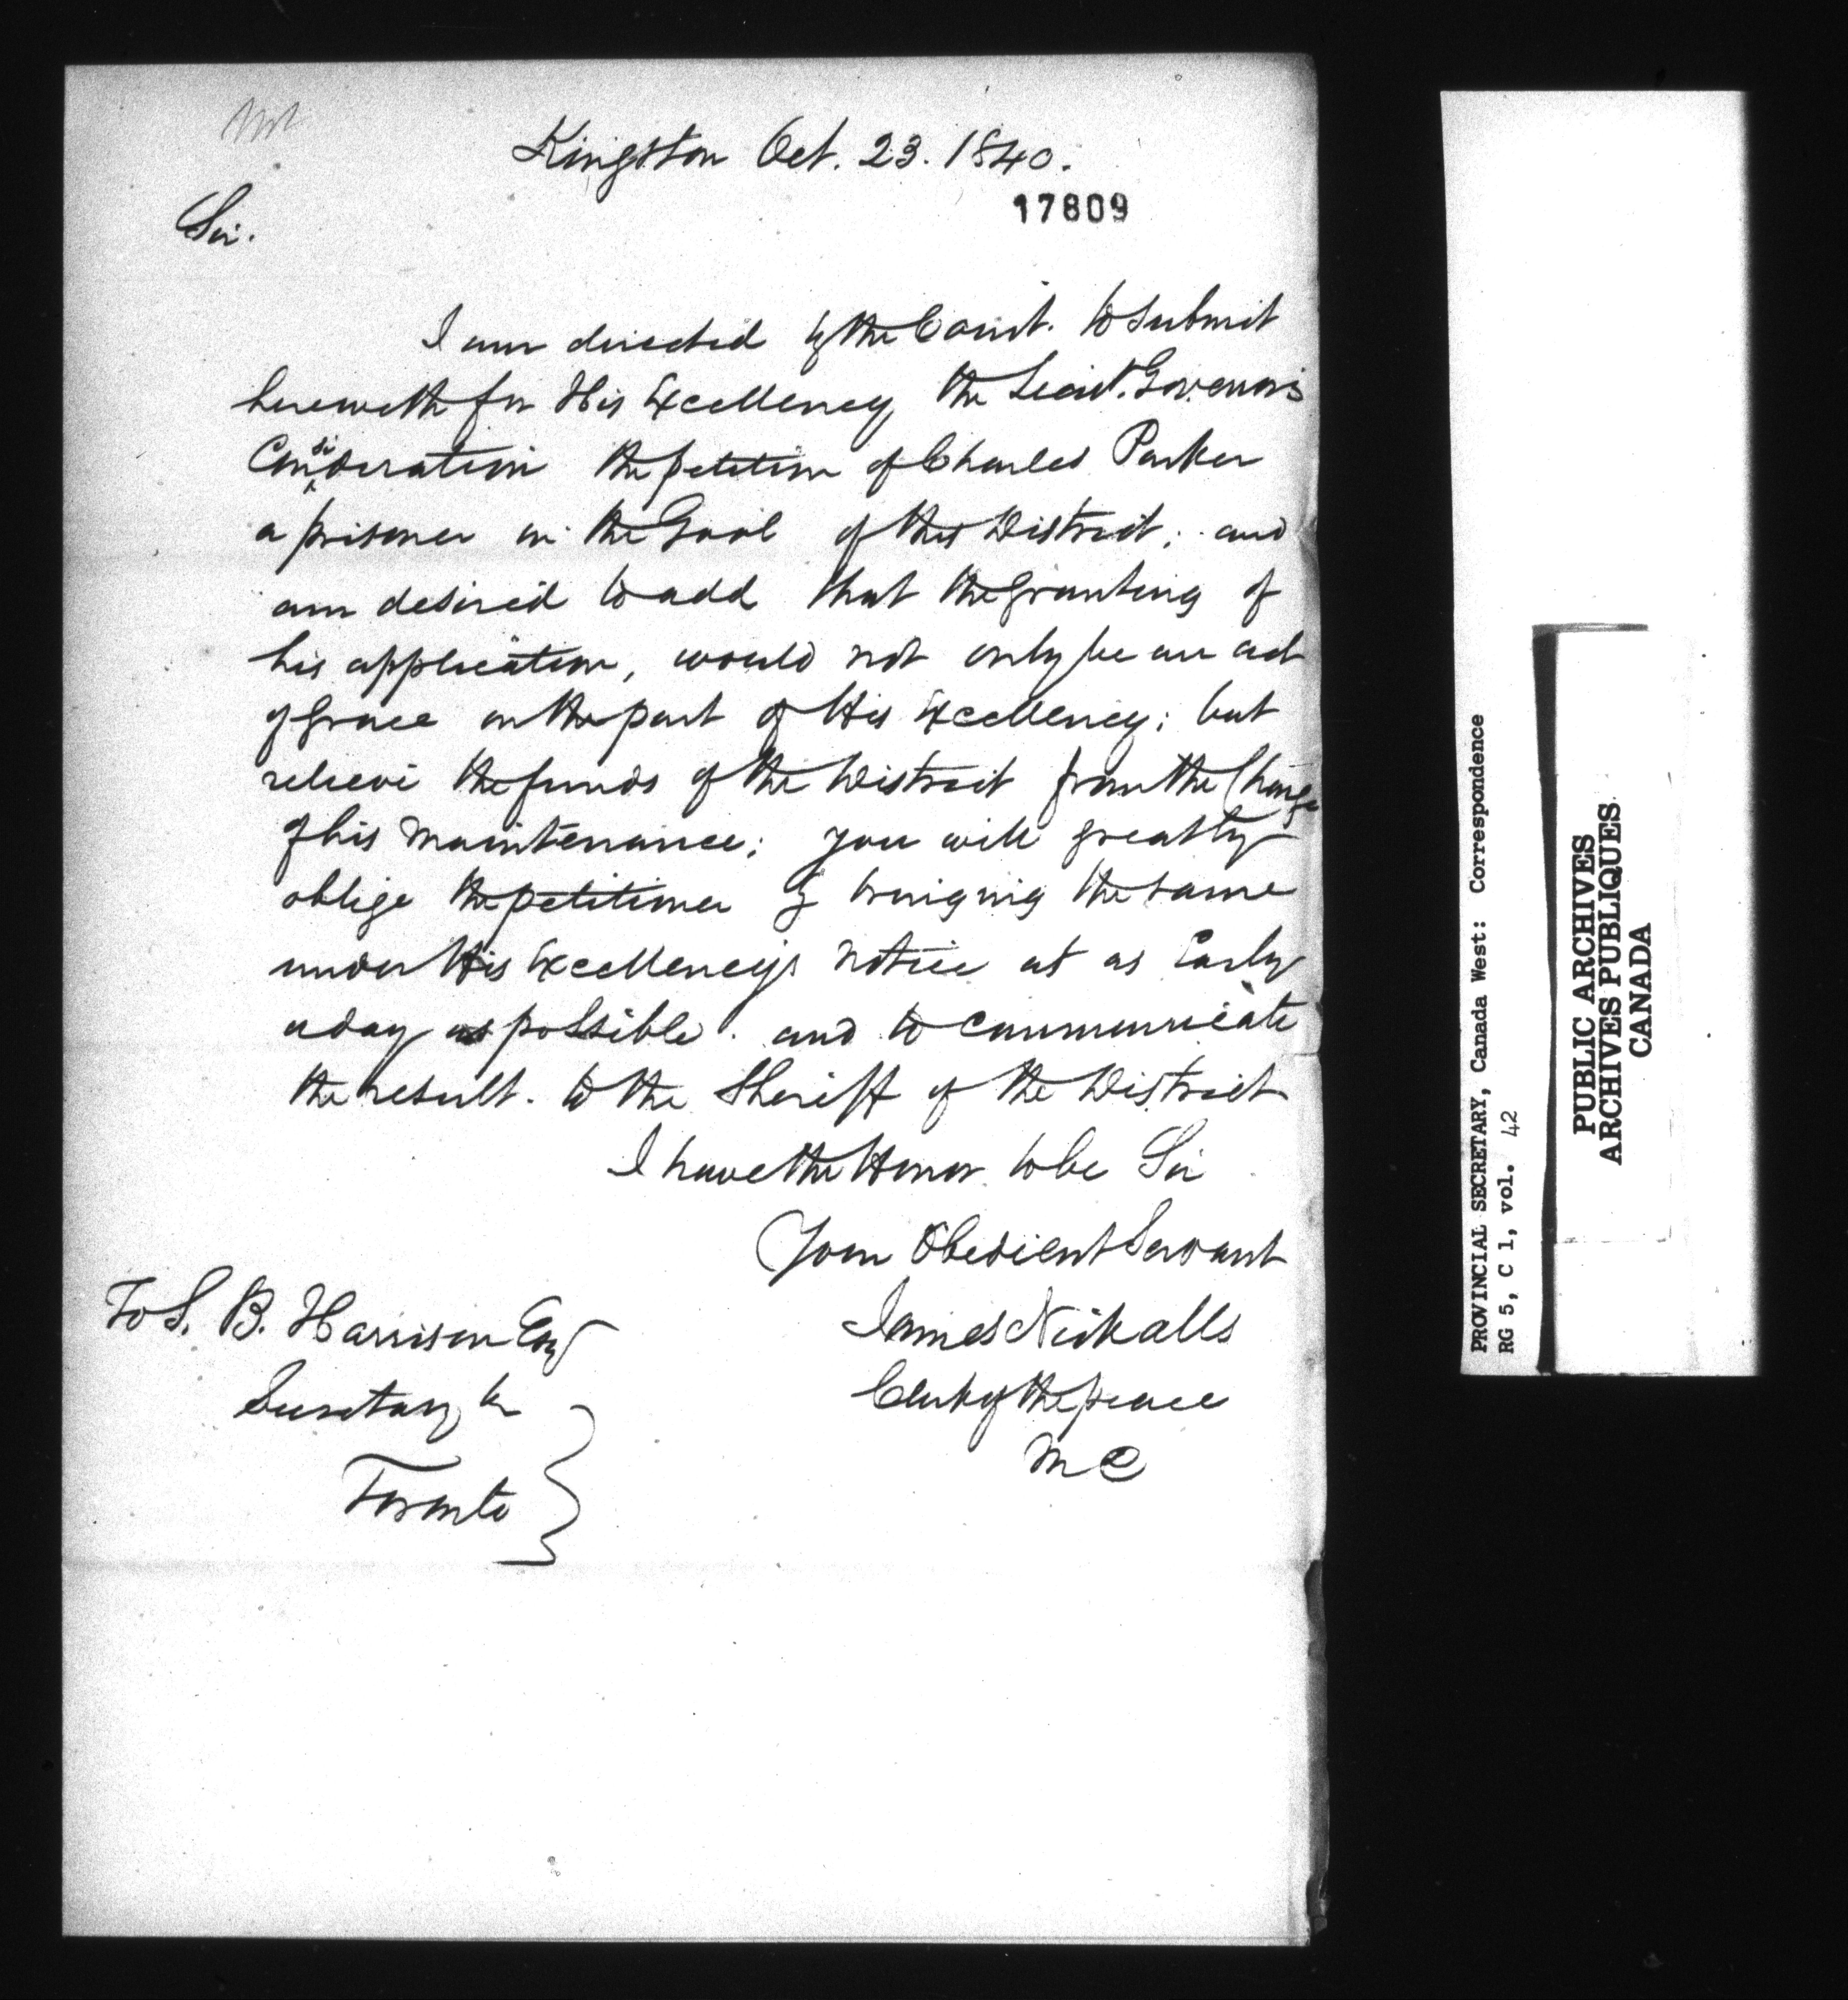 Kingston Oct. 23. 1840.
17809
Sir.
I am directed by the Court. to submit
herewith for His Excellency the Lieut. Governors
Consideration the petition of Charles Parker
a prisoner in the Gaol of this District; and
am desired to add that the granting of
his application, would not only be an act
of Grace on the part of His Excellency; but
relieve the funds of the District from the Charge
of his maintenance; you will greatly
oblige the petitioner by bringing the same
under His Excellencys notice at as Early
a day as possible. and to communicate
the result. to the Sheriff of the District
I have the Honor to be Sir
Your Obedient Servant
James Nickalls
Clerk of the peace
M D
To S. B. Harrison Esq
Secretary &c
Toronto
PROVINCIAL SECRETARY, Canada West: Correspondence
RG 5, C 1, vol. 42
PUBLIC ARCHIVES
ARCHIVES PUBLIQUES
CANADA